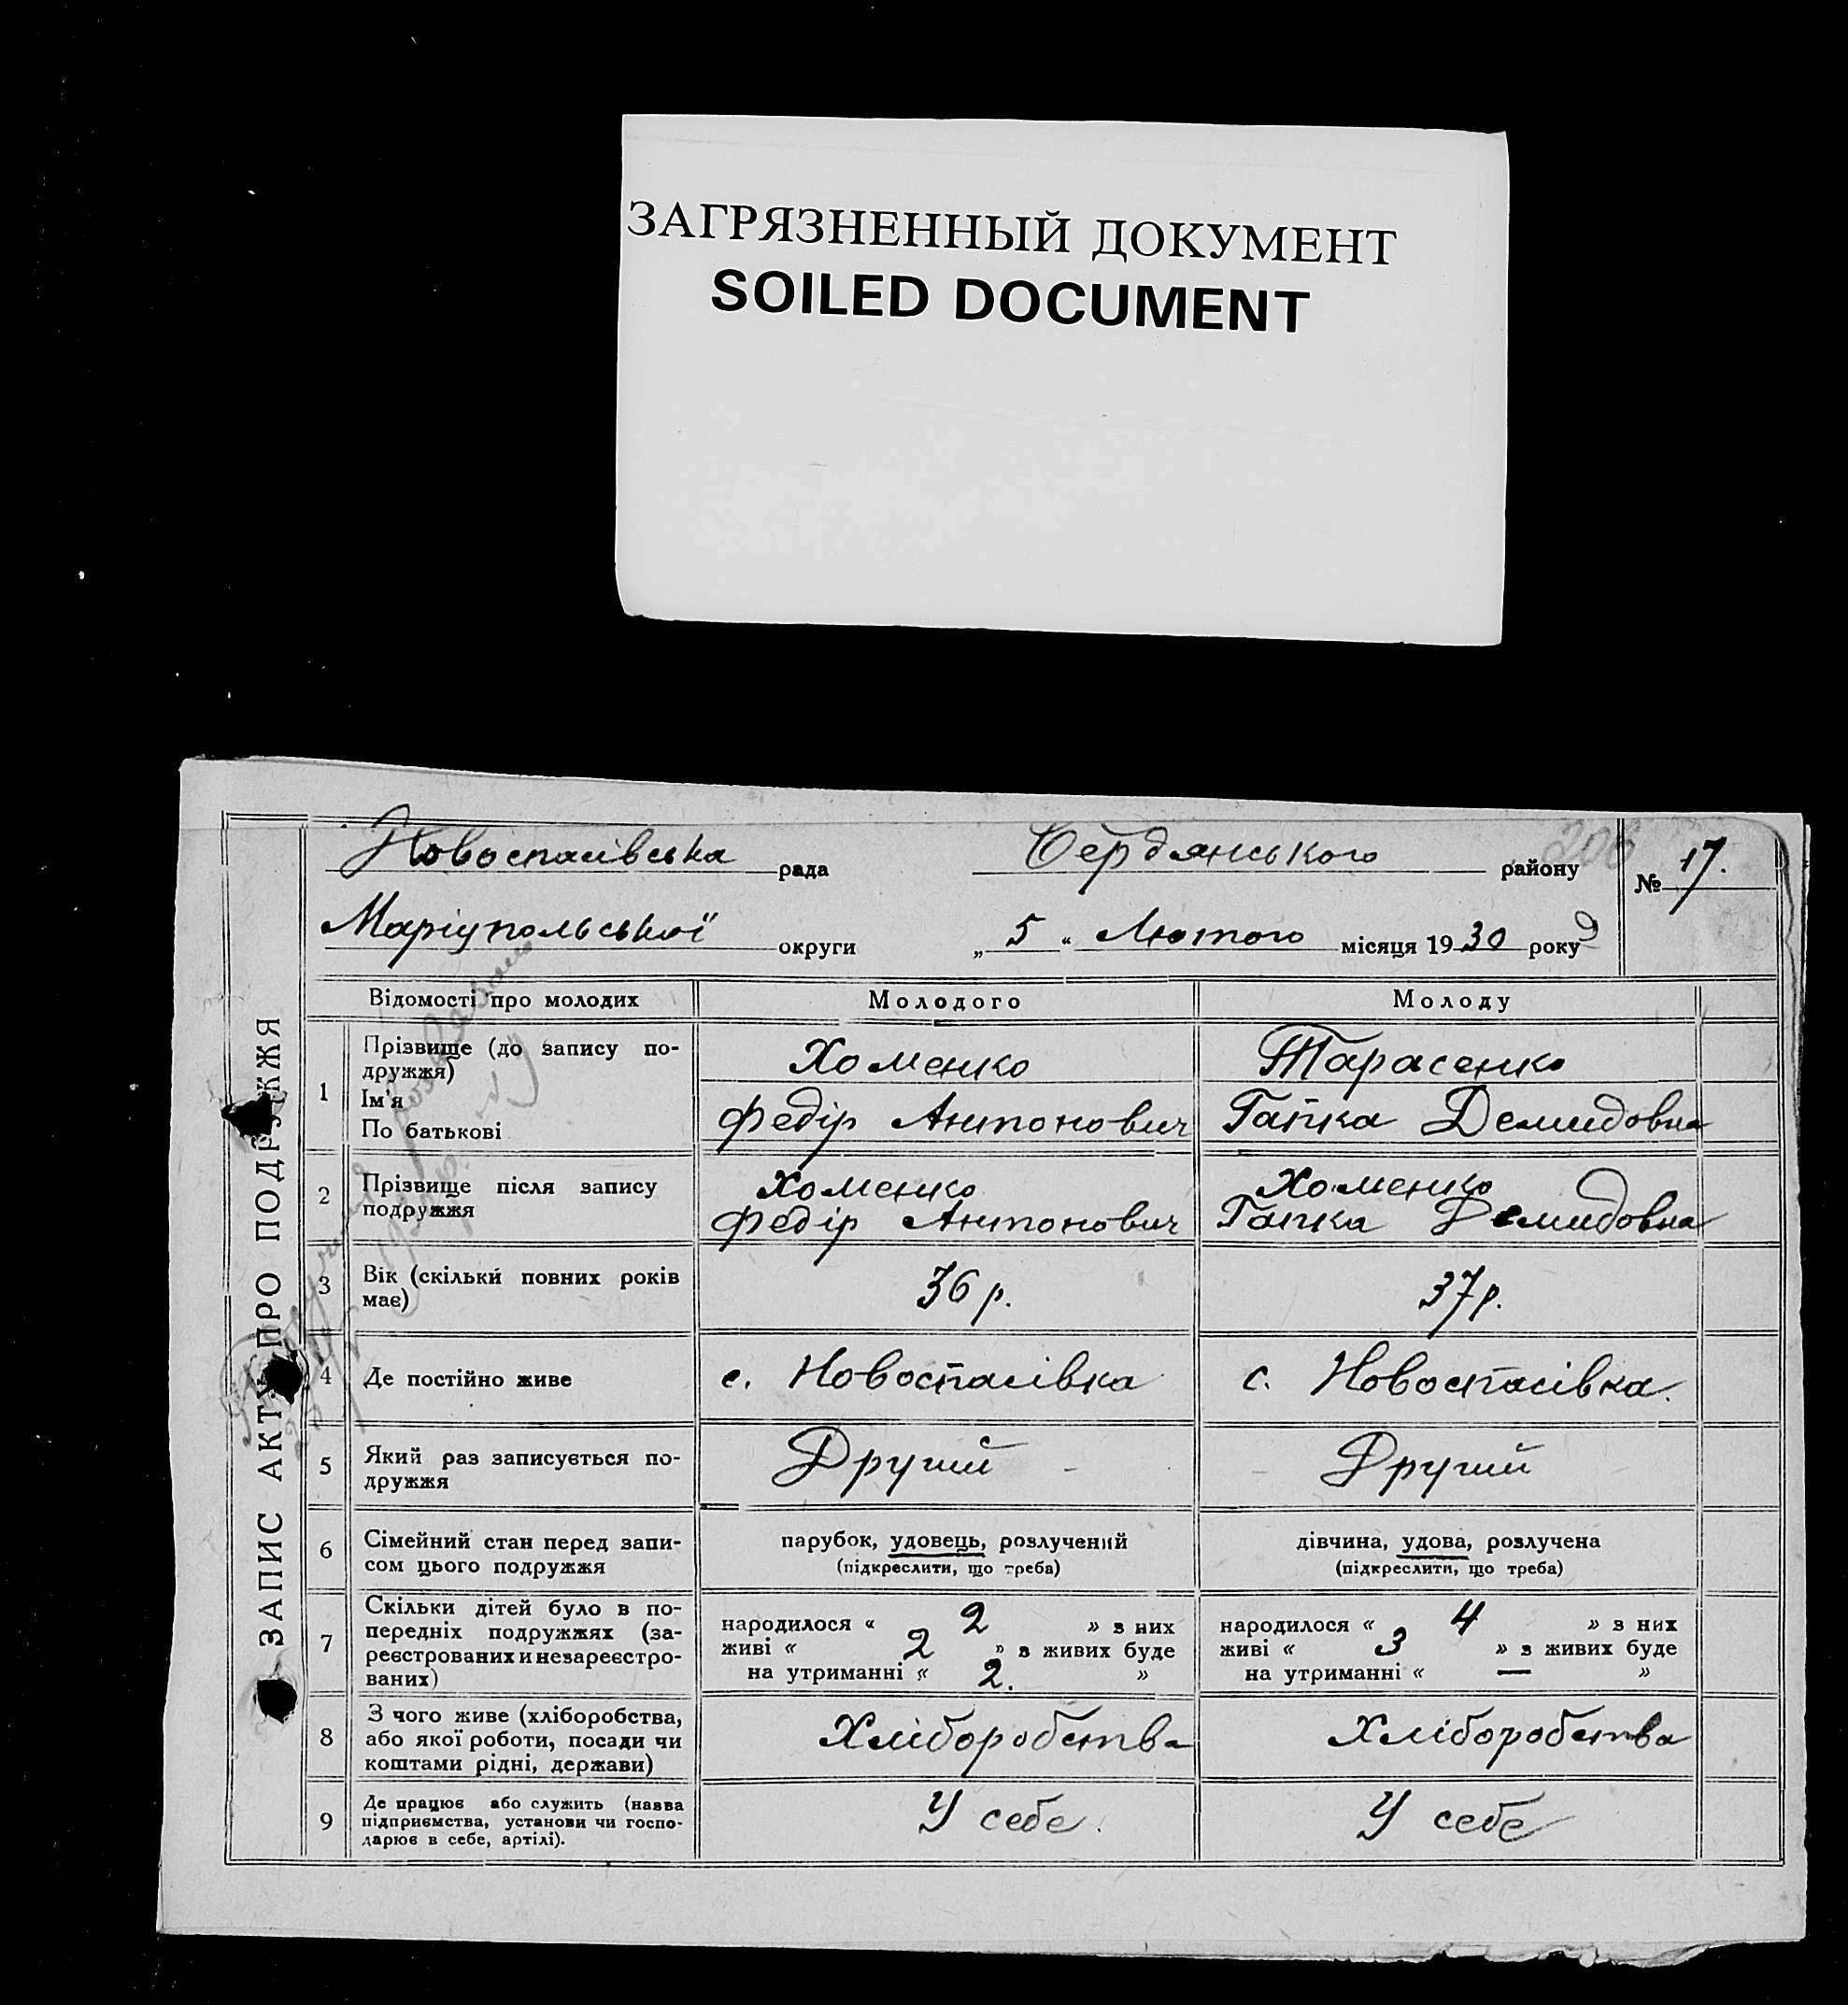 ЗАГРЯЗНЕННЫЙ ДОКУМЕНТ
SOILED DOCUMENT
Новоспасівська рада Бердянського району 206 № 17.
Маріупольської округи „ 5 “ Лютого місяця 1930 року
ЗАПИС АКТУ ПРО ПОДРУЖЖЯ
Відомості про молодих Молодого Молоду
1 Прізвище (до запису по-
дружжя) Хоменко Тарасенко
Ім'я
По батькові Федір Антонович Гапка Демидовна
2 Прізвище після запису Хоменко Хоменко
подружжя Федір Антонович Гапка Демидовна
3 Вік (скільки повних років
має) 36 р. 37 р.
4 Де постійно живе с. Новоспасівка с. Новоспасівка.
5 Який раз записується по-
дружжя Другий Другий
6 Сімейний стан перед запи- парубок, удовець, розлучений дівчина, удова, розлучена
сом цього подружжя (підкреслити, що треба) (підкреслити, що треба)
7 Скільки дітей було в по-
передніх подружжях (за- народилося « 2 » з них народилося « 4 » з них
реєстрованих и незареєстро- живі « 2 » з живих буде живі « 3 » з живих буде
ваних) на утриманні « 2. » на утриманні « — »
8 З чого живе (хліборобства,
або якої роботи, посади чи Хліборобства Хліборобства
коштами рідні, держави)
9 Де працює або служить (назва
підприємства, установи чи госпо- У себе. У себе
дарює в себе, артілі).